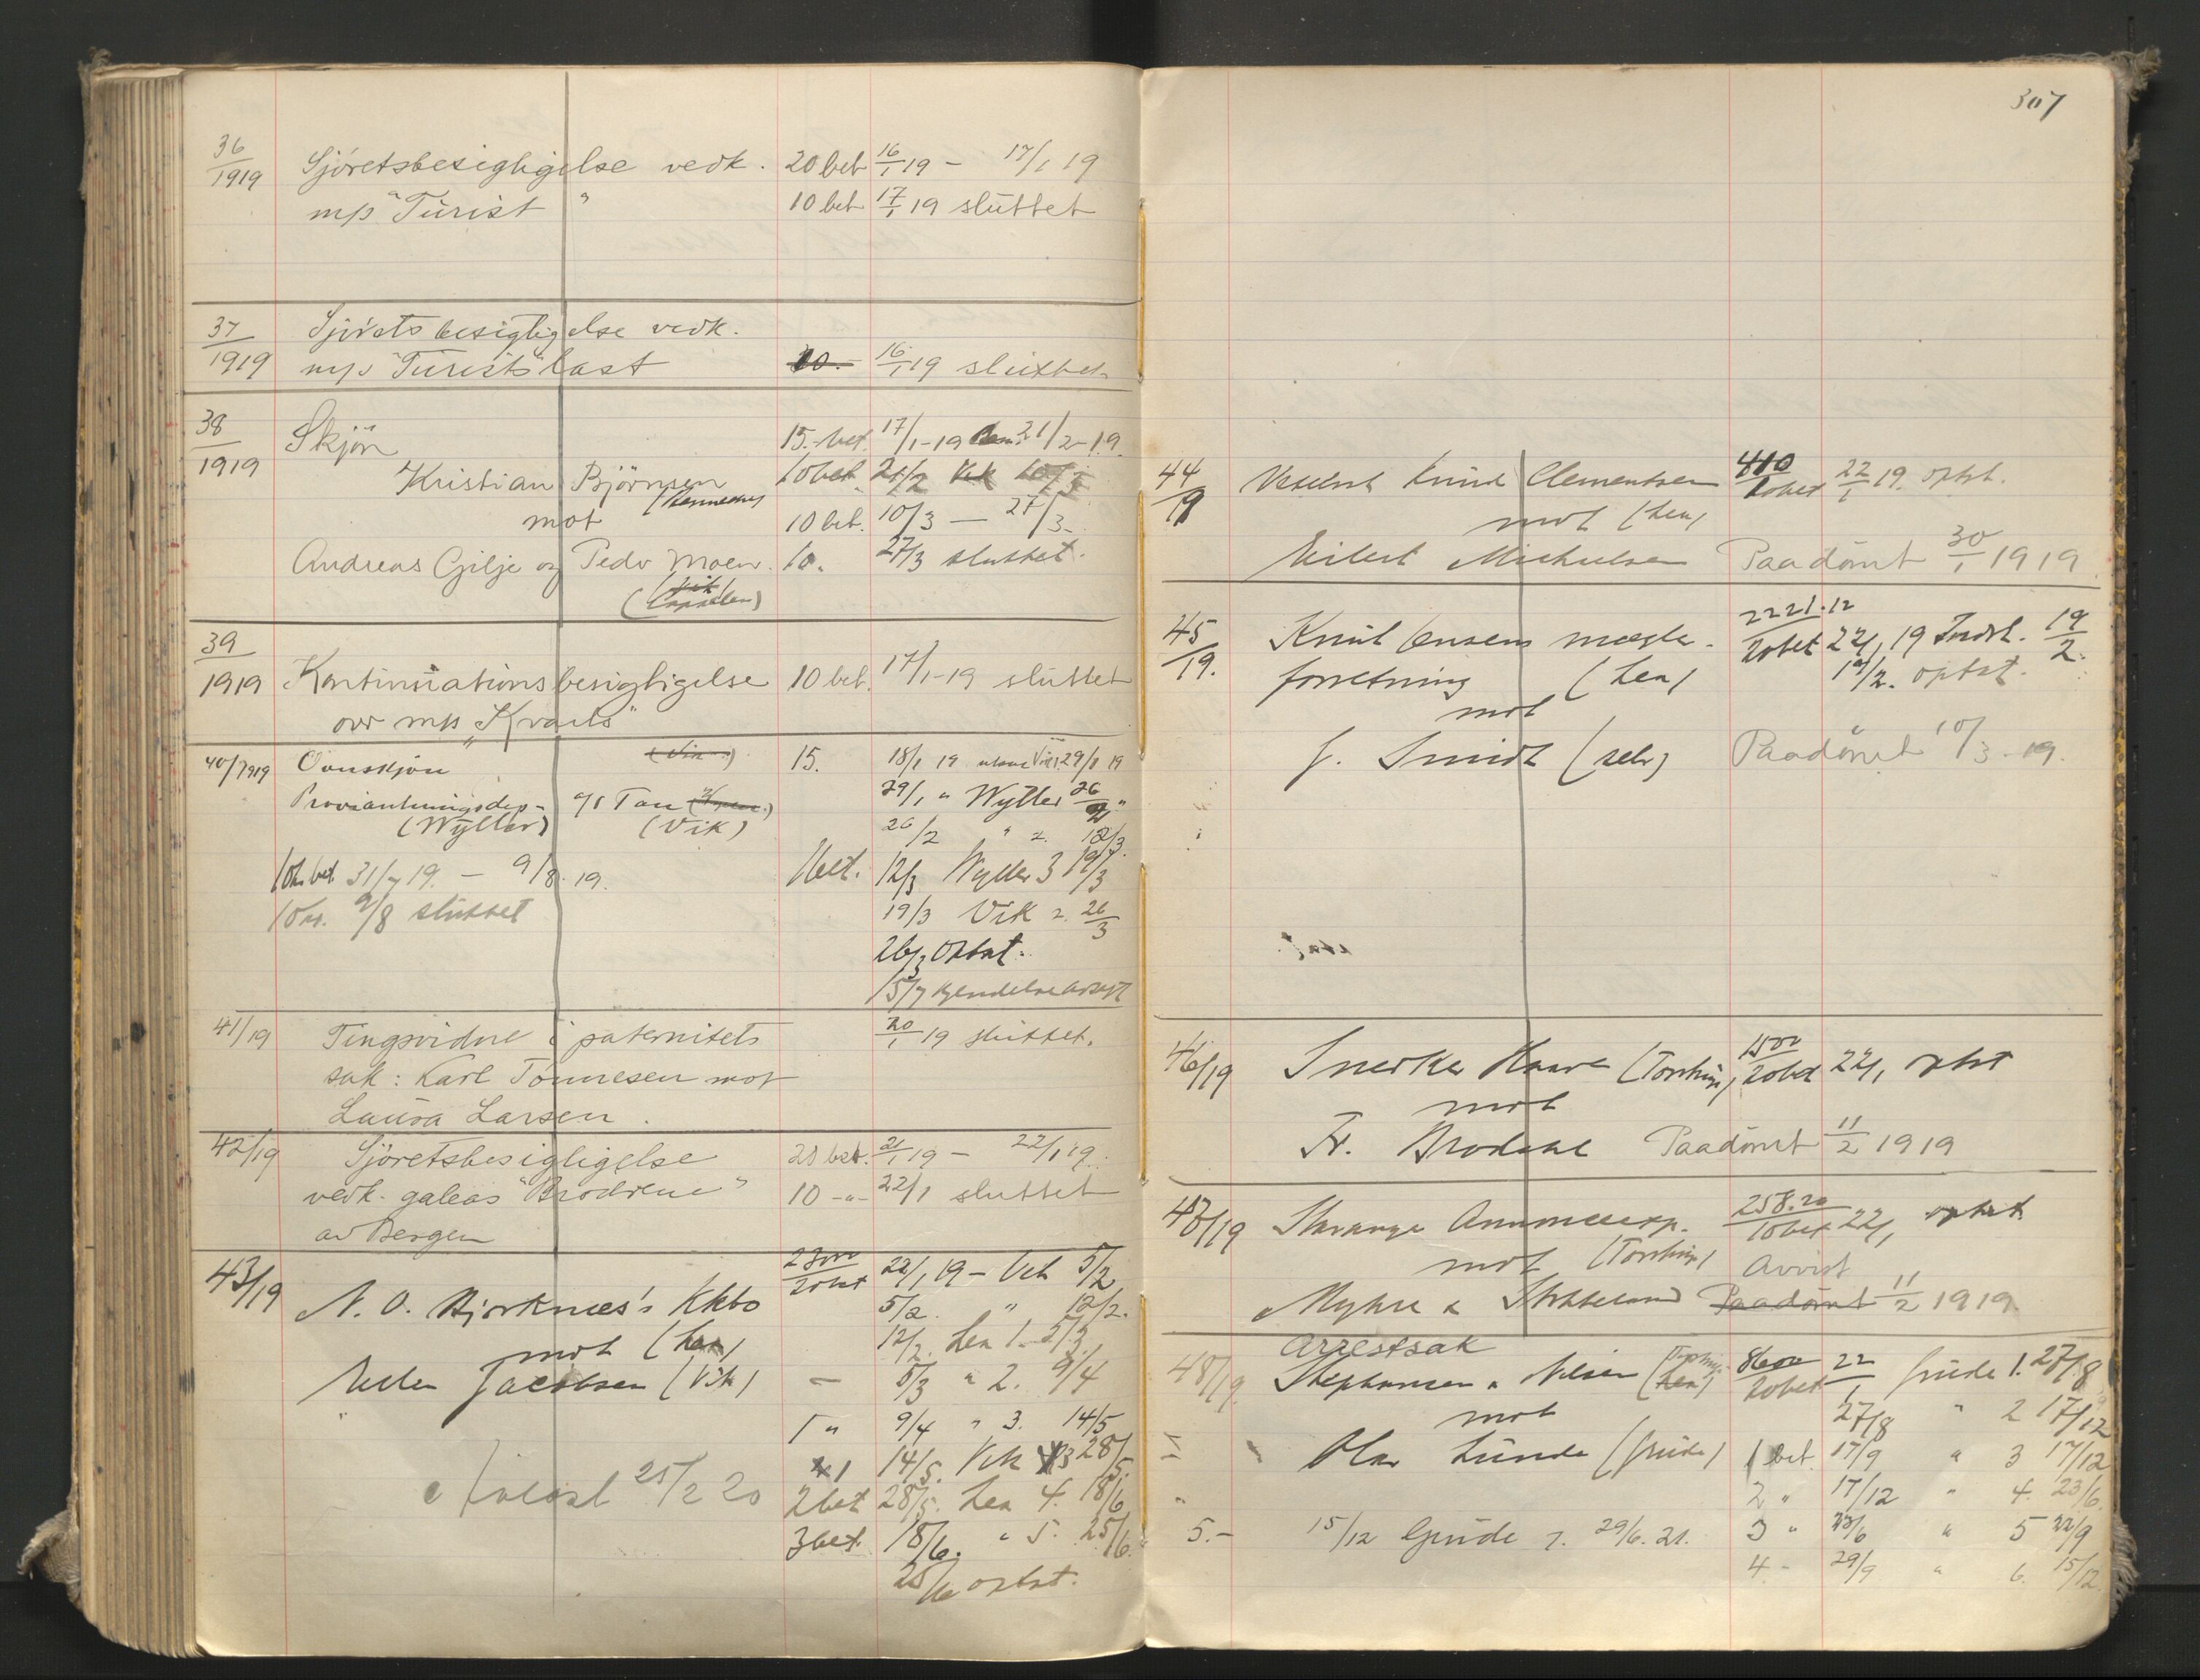 36/1919 Sjöretsbesigtigelse vedk. 20 bet 16/1 19 - 17/1 19
m/s "Turist" 10 bet 17/1 19 sluttet
37/1919 Sjöretsbesigtigelse vedk.
m/s "Turists" last 10.- 16/1 19 sluttet
38/1919 Skjön 15.- bet. 17/1-19 21/2-19.
Kristian Björnsen 10 bet 21/2 Vik 10/3
mot 10 bet. 10/3 - 27/3
Andreas Gilje og Peder Moen. 10. 27/3 sluttet.
(Vik)
(Cappelen)
39/1919 Kontinuationsbesigtigelse 10 bet. 17/1-19 sluttet
over m/s "Kvarts"
40/1919 Overskjön (Vik) 15. 18/1 19 Vik 29/1 19
Provianteringsdep- a/s Tau
(Wyller) (Vik) 29/1 " Wyller 26/2 "
26/2 " 2. 12/3.
10 kr. bet. 31/7 19. - 9/8. 19. 1 bet. 12/3 Wyller 3 19/3
10 kr. 9/8 sluttet 19/3 Vik 2. 26/3
26/3 optat.
15/7 Kjendelse avsagt
41/19 Tingsvidne i paternitets 20/1 19 sluttet.
sak: Karl Tönnesen mot
Laura Larsen.
42/19 Sjöretsbesigtigelse 20 bet. 21/1 19 - 22/1 19.
vedk. galeas "Brödrene" 10 -"- 22/1 sluttet
av Bergen
43/19 N. O. Bjorknes's Kkbo 2300/20 bet 22/1 19 - Vik 5/2
5/2. " 12/2.
mot (Lea) 12/2. Lea 1. 5/3.
Jacobsen (Vik) - 5/3 " 2. 9/4
1 " 9/4 " 3. 14/5
1 14/5. Vik 3 28/5.
Hævet 25/2 20 2 bet 28/5. Lea 4. 18/6
3 bet. 18/6. " 5. 25/6.
25/6 optat.
307
44/19 Knud Clementsen 410/10 bet 22/1 19. optat.
mot (Lea)
Eilert Michelsen Paadömt 30/1 1919.
45/19. Knut Jensens mægler- 2221.12/20 bet 22/1 19 Indst. 19/2.
forretning (Lea) 19/2. optat.
mot
J. Smidt (selv) Paadömt 10/3-19.
46/19 Snerker Haave (Torkings) 1500/20 bet 22/1 optat
mot
Fr. Brodahl Paadömt 11/2 1919
47/19 Stavanger Annonceexp. 258.20/10 bet 22/1 optat
mot (Torkings) Avvist
Myhre & Stokkeland Paadömt 11/2 1919.
Arrestsak
48/19. Stephansen & Nilsen (Lea) 8600/20 bet 22/1 Gude 1. 27/8
mot 27/8 " 2 17/12
Olav Lunde (Gude) 1 bet. 17/9 " 3 17/12
2 " 17/12 " 4. 23/6.
5.- 15/12 Gude 7. 29/6. 21. 3 " 23/6 " 5 22/9
4.- 29/9 " 6. 15/12.